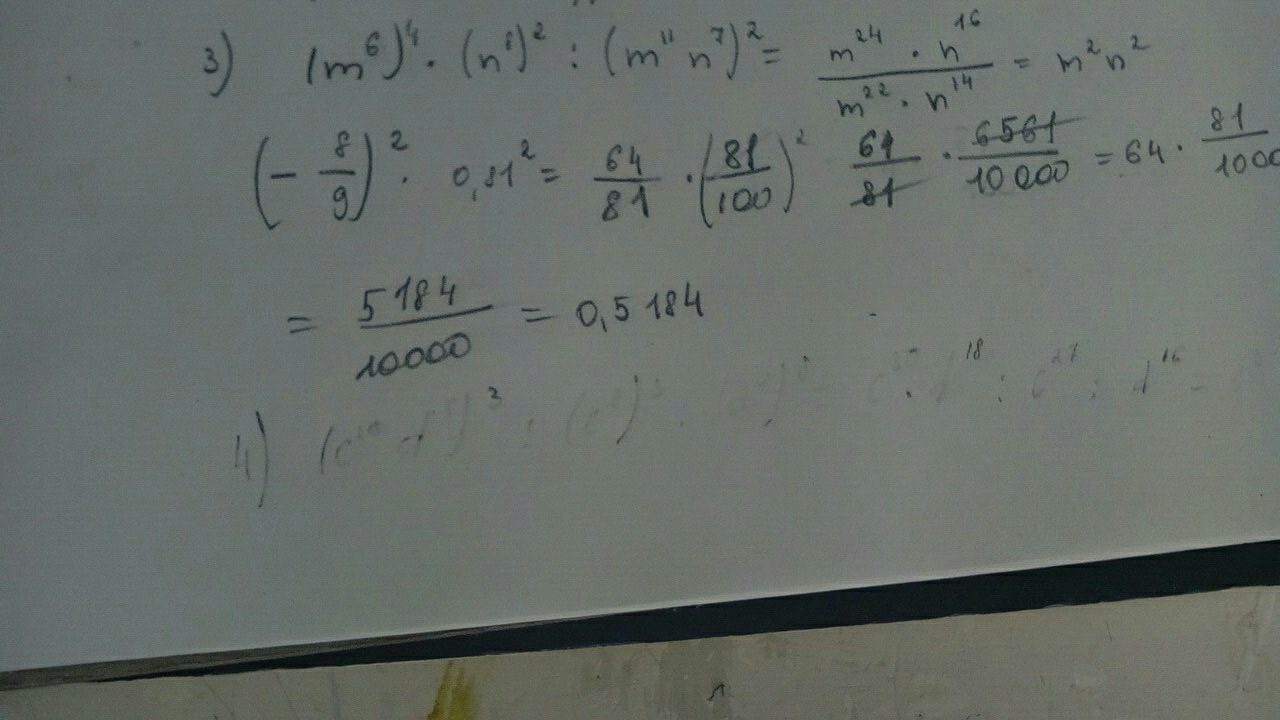 3) (m⁶)⁴ · (n⁸)² : (m¹¹ n⁷)² = m²⁴ · n¹⁶ / m²² · n¹⁴ = m² n²
(- 8/9)² · 0,81² = 64/81 · (81/100)² 64/81 · 6561/10000 = 64 · 81/1000
= 5184/10000 = 0,5184
4)